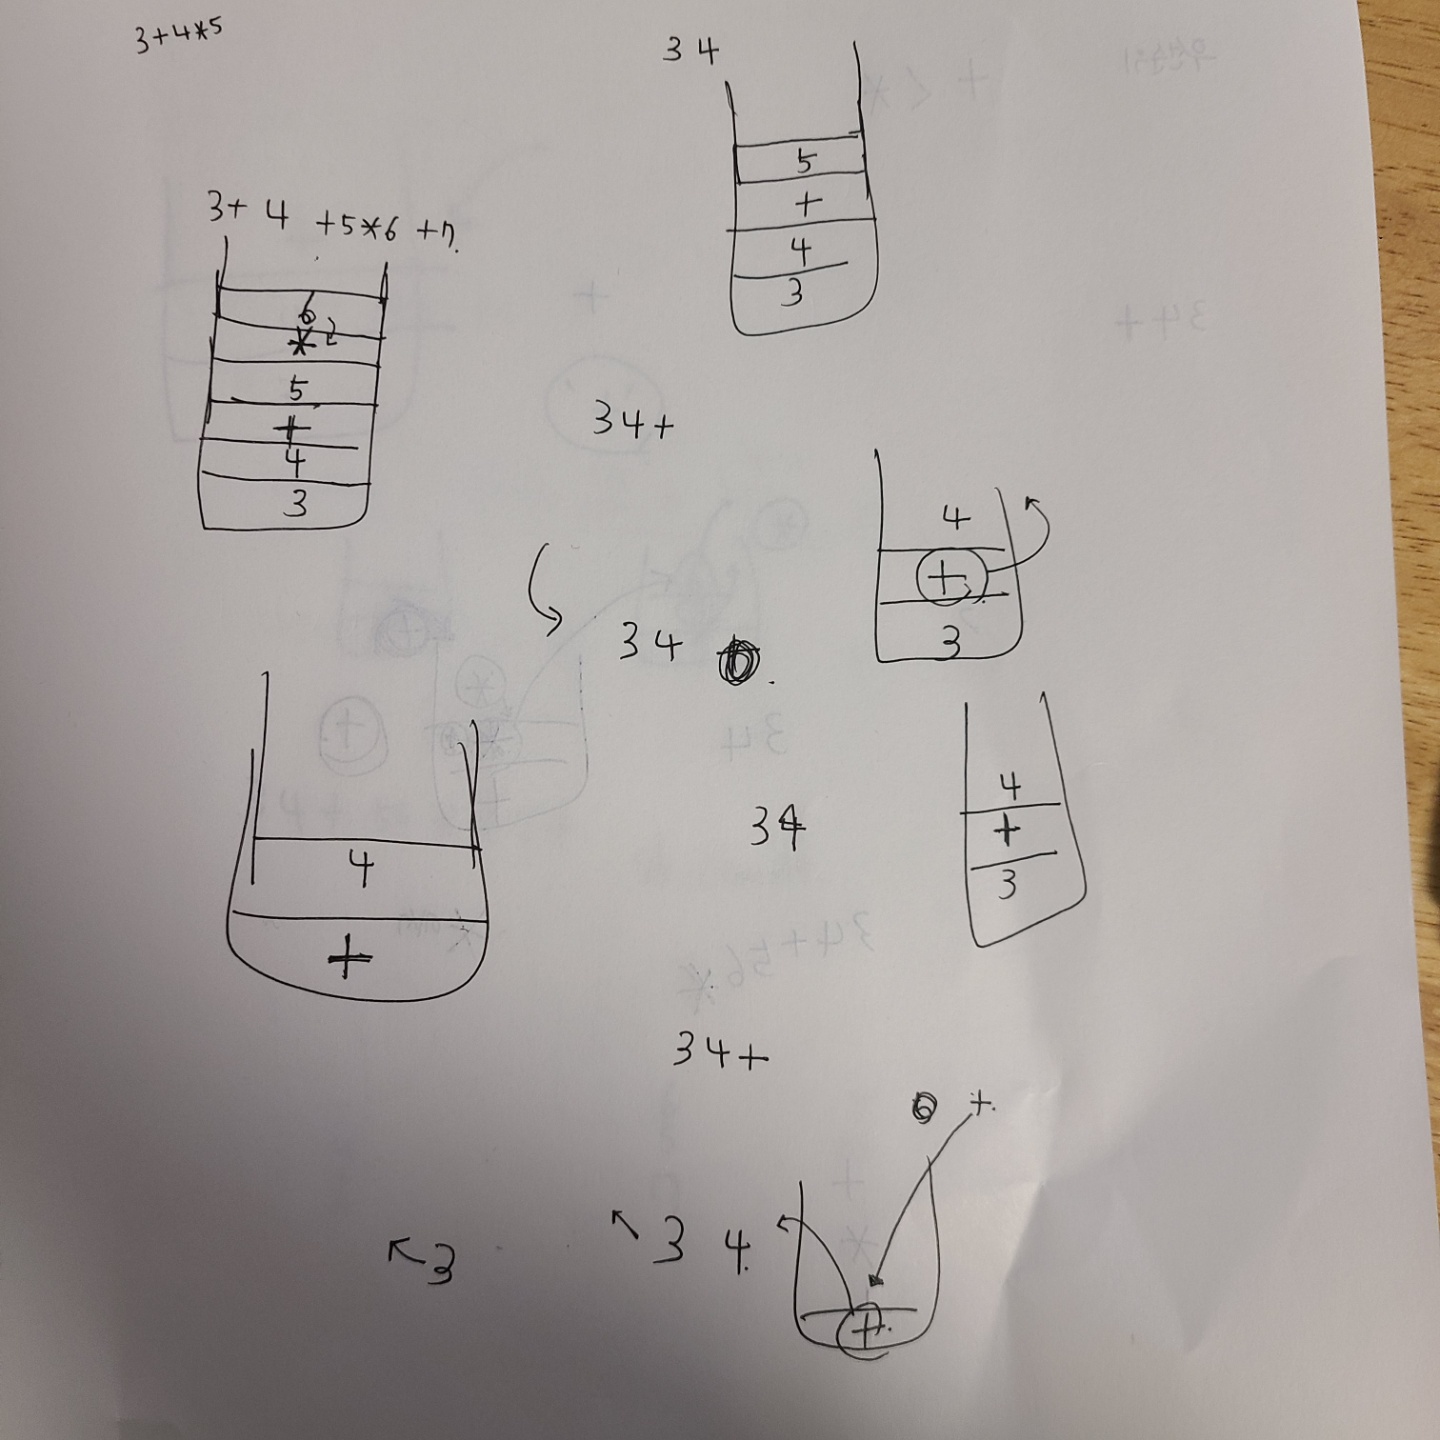 3+4*5
3 4
5
+
4
3
3+ 4 +5*6 +7.
6
*
5
+
4
3
34+
4
+
3
34
4
+
34
4
+
3
34+
+
3
3 4
+